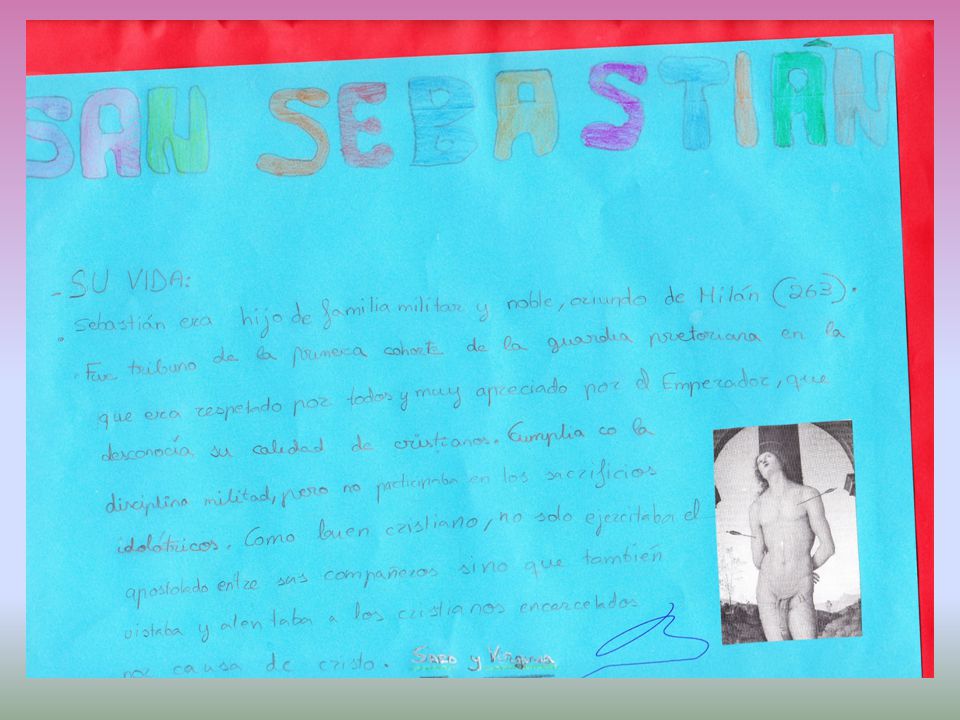 SAN SEBASTIÁN
- SU VIDA:
Sebastián era hijo de familia militar y noble, oriundo de Milán (263).
Fue tribuno de la primera cohorte de la guardia pretoriana en la
que era respetado por todos y muy apreciado por el Emperador, que
desconocía su calidad de cristianos. Cumplia co la
disciplina militad, pero no participaba en los sacrificios
idolátricos. Como buen cristiano, no solo ejercitaba el
apostolado entre sus compañeros sino que también
vistaba y alentaba a los cristianos encarcelados
por causa de cristo. Saro y Virginia